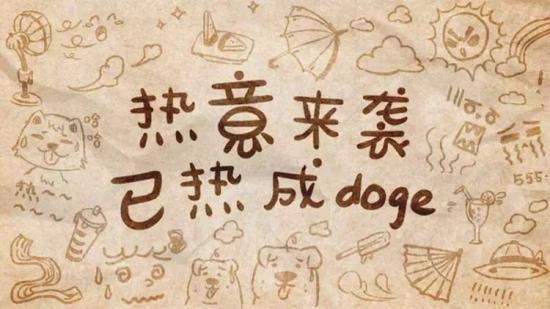 热意来袭
已热成doge
哈
哈
热
555